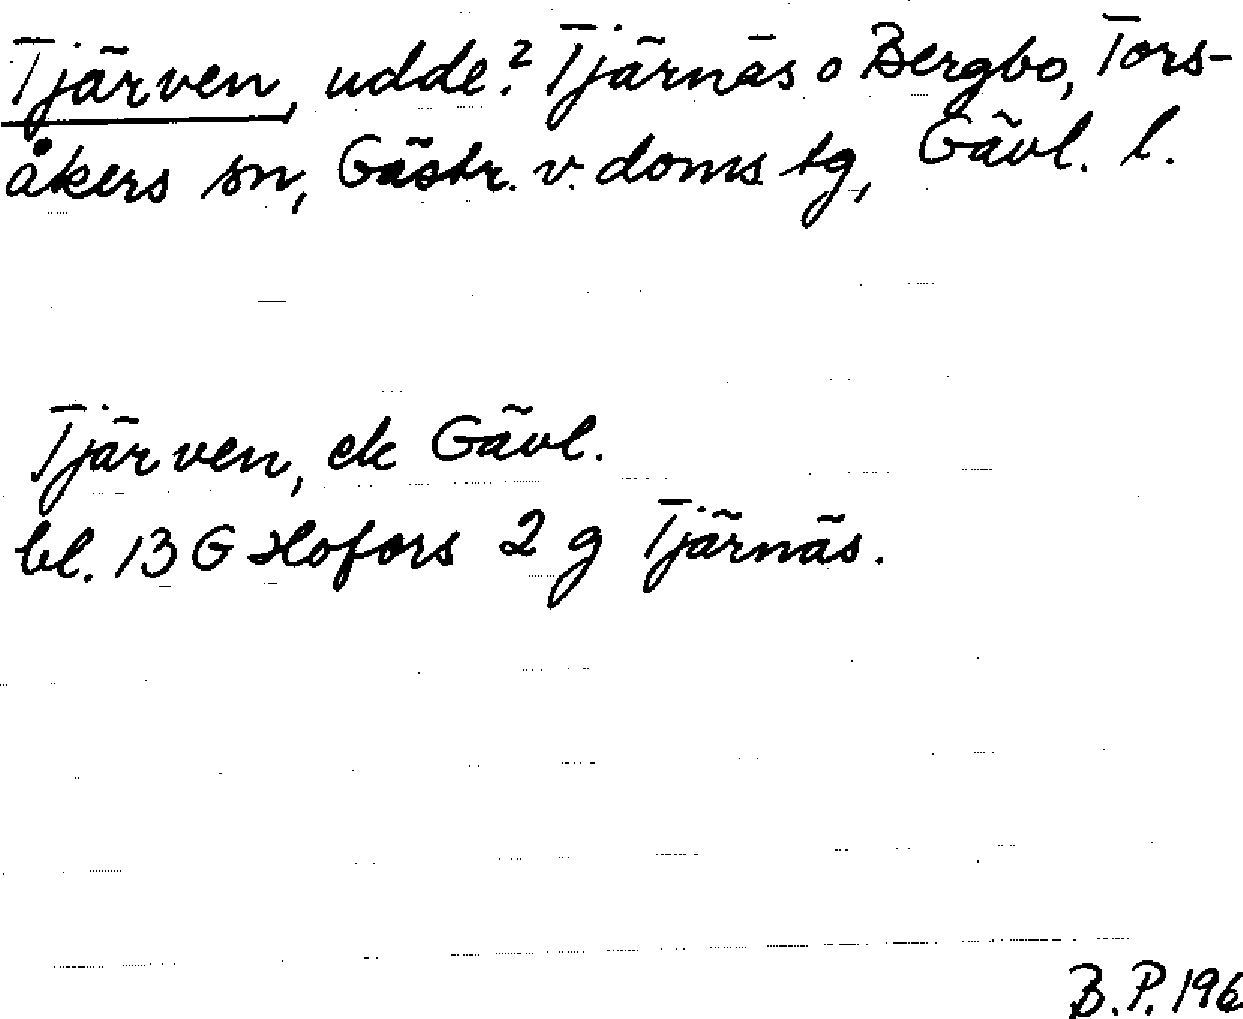 Tjärven, udde? Tjärnäs o Bergbo, Tors-
åkers sn, Gästr. v. doms tg, Gävl. l.
Tjärven, ek Gävl.
bl. 13 G Hofors 2 g Tjärnäs.
B.P. 196